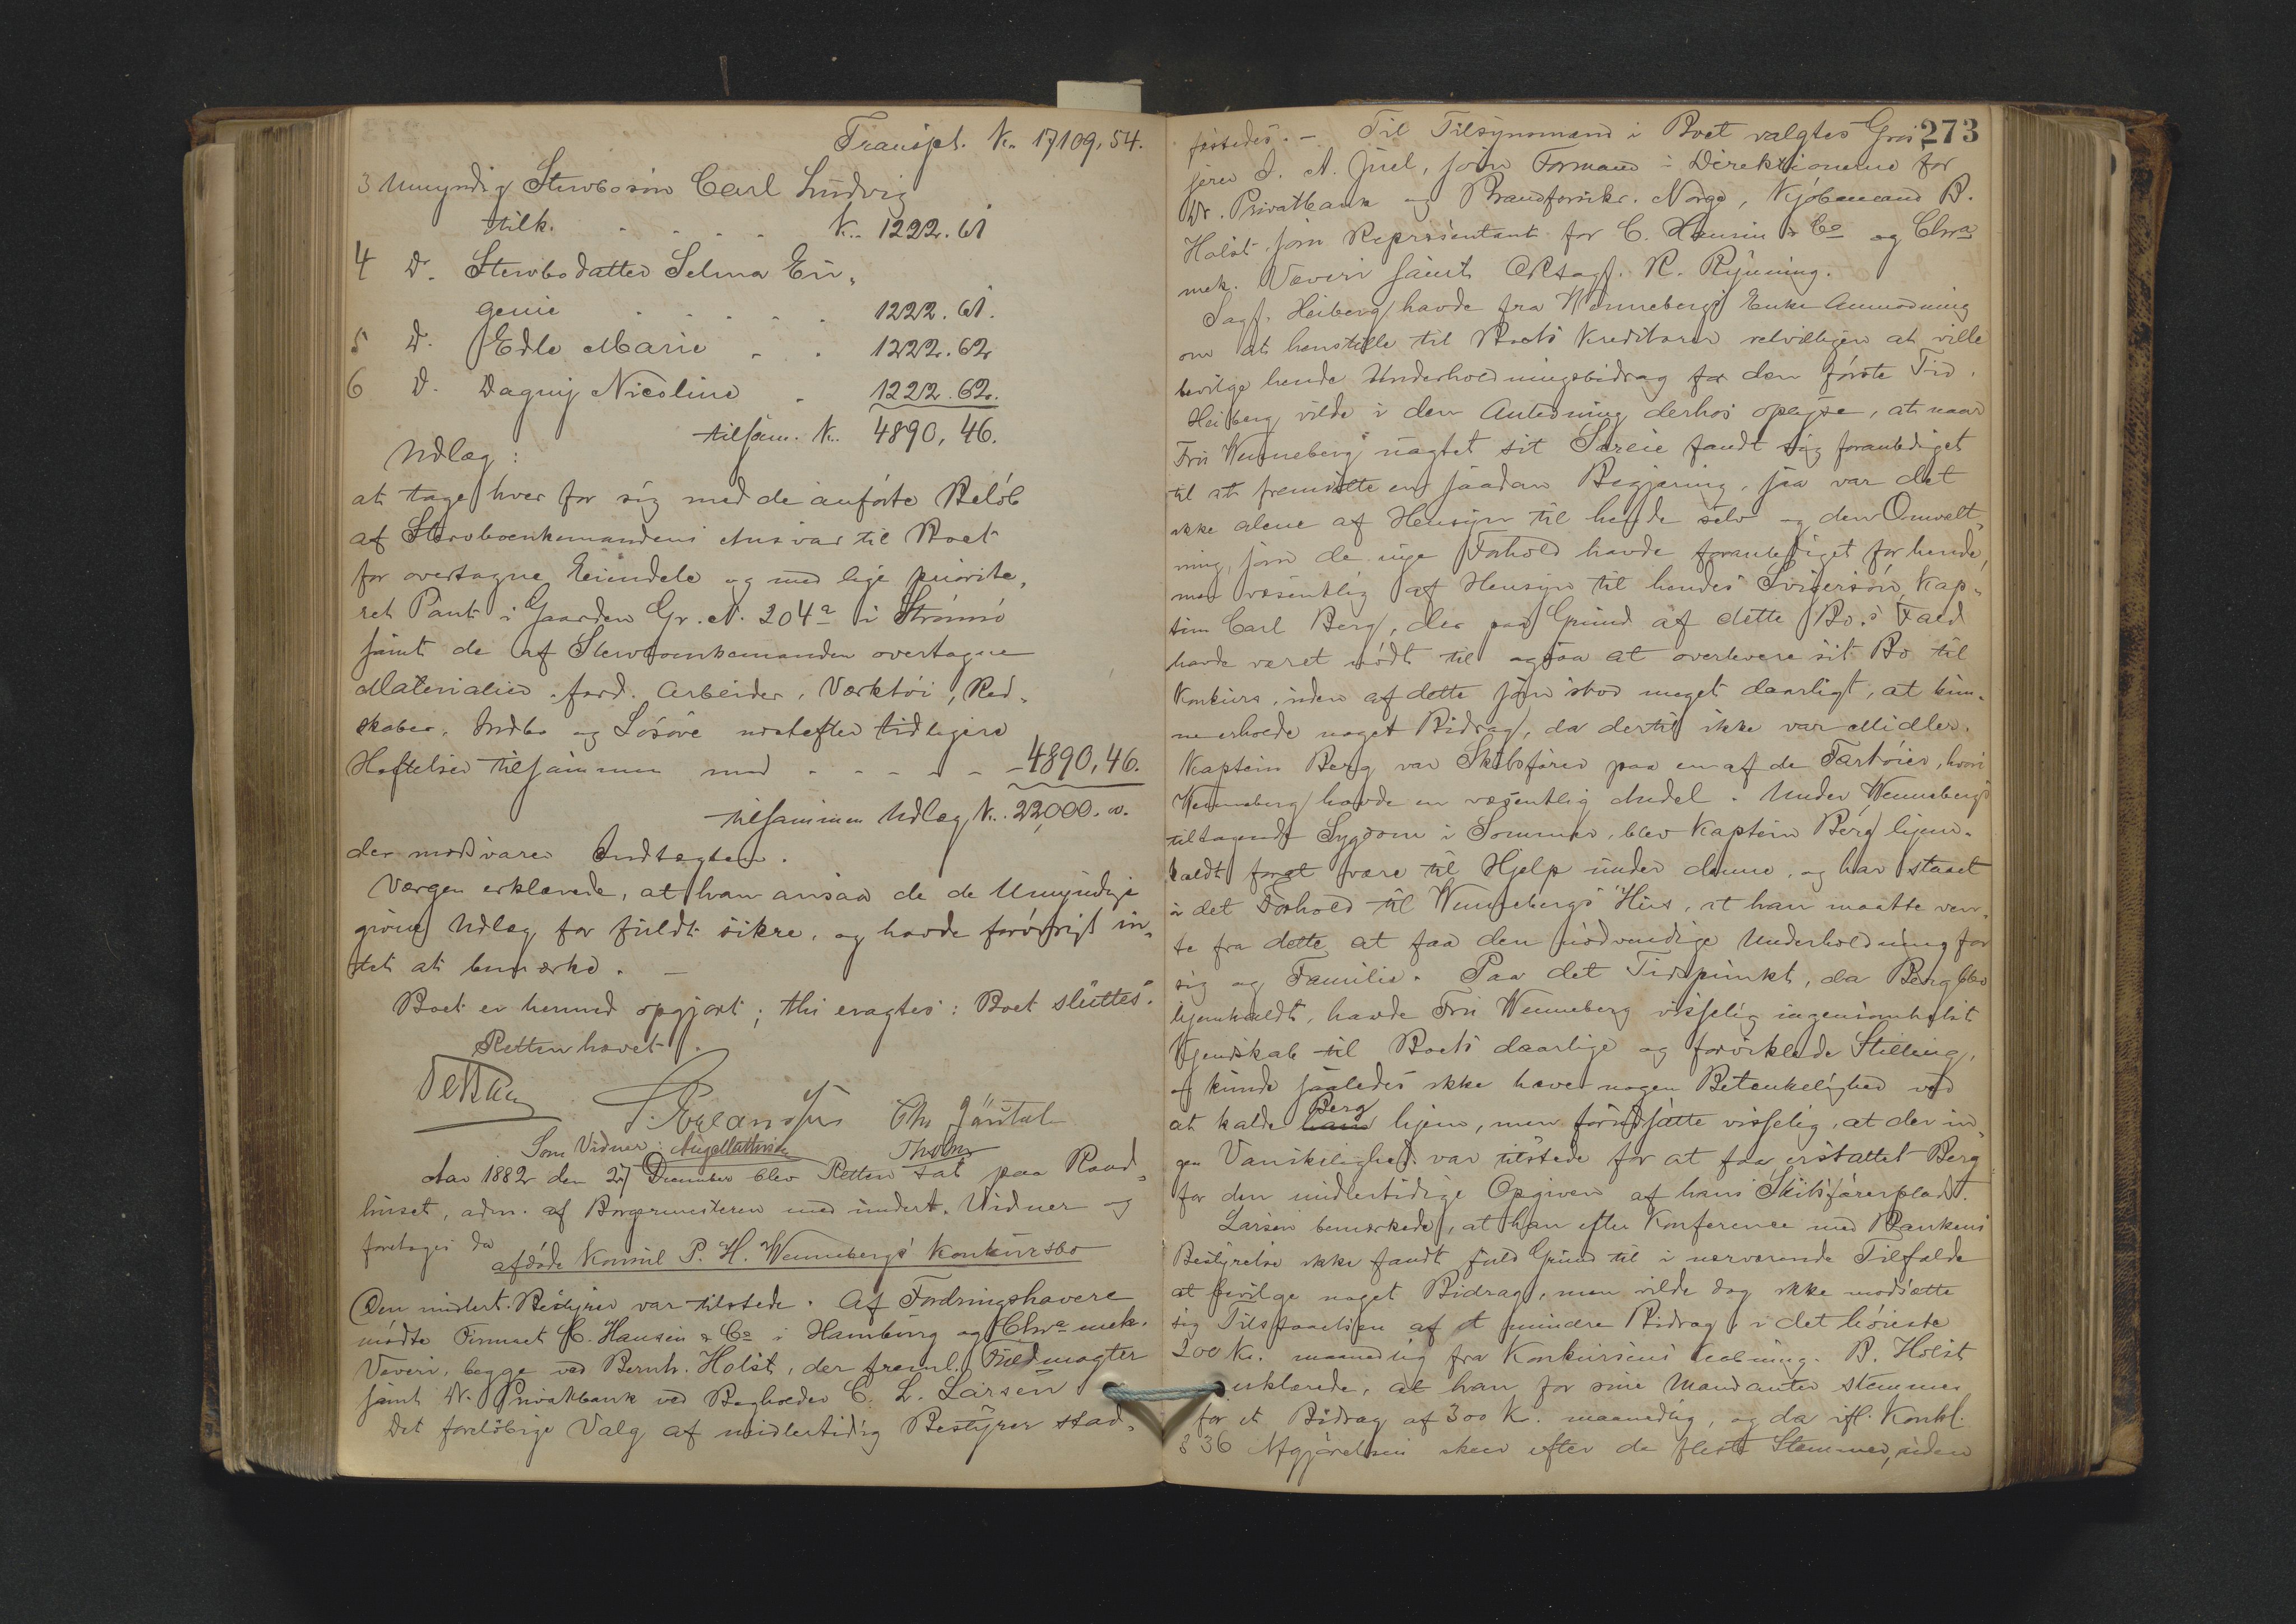 Transpt. Kr. 17109,54.
3 Umyndig Stervbosøn Carl Ludvig
tilk. . . . . Kr. 1222.61
4 Do. Stervbodatter Selma Eu-
genie . . . . . 1222.61.
5 D. Edle Marie . . 1222.62
6 D. Dagny Nicoline . 1222.62.
tilsam. Kr. 4890,46.
Udlæg:
at tage hver for sig med de anførte Beløb
af Stervboenkemandens Ansvar til Boet
for overtagne Eiendele og med lige priorite-
ret Pant i Gaarden Gr. N. 204a i Strømsø
samt de af Stervboenkemanden overtagne
Materialier, færd. Arbeider, Værktøi, Red-
skaber, Indbo og Løsøre næstefter tidligere
Heftelser tilsammen med - - - - - - 4890,46.
tilsammen Udlæg Kr. 22,000.00.
der modsvarer Indtægten.
Værgen erklærede, at han ansaa de de Umyndige
givne Udlæg for fuldt sikre, og havde forøvrigt in-
tet at bemærke. —
Boet er hermed opgjort; thi eragtes: Boet sluttes.
Retten hævet.
Som Vidner:
Aar 1882 den 27 December blev Retten sat paa Raad-
huset, adm. af Borgermesteren med undert. Vidner og
foretages da
afdøde Konsul P. H. Wennebergs Konkursbo
Den midlert. Bestyrer var tilstede. Af Fordringshavere
mødte Firmaet C. Hansen & Co i Hamburg og Chra mek.
Væveri, begge ved Bernh. Holst, der freml. Fuldmagter
samt Dr. Privatbank ved Bogholder C. L. Larsen
Det foreløbige Valg af midlertidig Bestyrer stad-
273
fæstedes. — Til Tilsynsmænd i Boet valgtes Gros-
serer J. A. Juel, som Formand i Direktionerne for
Dr. Privatbank og Brandforsikr. Norge, Kjøbmand B.
Holst som Repræsentant for C. Hansen & Co og Chra
mek. Væveri samt ORsagf. K. Rynning.
Sagf. Heiberg havde fra Wennebergs Enke Anmodning
om at henstille til Boets Kreditorer velvilligen at ville
bevilge hende Underholdningsbidrag for den første Tid.
Heiberg vilde i den Anledning derhos oplyse, at naar
Fru Wenneberg uagtet sit Særeie fandt sig foranlediget
til at fremsætte en saadan Begjæring, saa var det
ikke alene af Hensyn til hende selv og den Omvælt-
ning, som de nye Forhold havde foranlediget for hende,
men væsentlig af Hensyn til hendes Svigersøn, Kap-
tein Carl Berg, der paa Grund af dette Bo's Fald
havde været nødt til ogsaa at overlevere sit Bo til
Konkurs, uden af dette som stod meget daarligt, at kun-
ne erholde noget Bidrag, da dertil ikke var Midler.
Kaptein Berg var Skibsfører paa en af de Fartøier, hvori
Wenneberg havde en væsentlig Andel. Under Wennebergs
tiltagende Sygdom i Sommer, blev Kaptein Berg hjem-
kaldt for at være til Hjelp under denne, og har staaet
i det Forhold til Wennebergs Hus, at han maatte ven-
te fra dette at faa den nødvendige Underholdning for
sig og Familie. Paa det Tidspunkt, da Berg blev
hjemkaldt, havde Fru Wenneberg visselig ingensomhelst
Kjendskab til Boets daarlige og forviklede Stilling,
og kunde saaledes ikke have nogen Betænkelighed ved
at kalde Berg hjem, men forudsatte visselig, at der in-
gen Vanskelighed var tilstede for at faa erstattet Berg
for den midlertidige Opgiven af hans Skibsførerplads.
Larsen bemærkede, at han efter Konference med Bankens
Bestyrelse ikke fandt fuld Grund til i nærværende Tilfælde
at bevilge noget Bidrag, men vilde dog ikke modsætte
sig Tilstaaelsen af et mindre Bidrag i det høieste
200 Kr. maanedlig fra Konkursens Aabning. B. Holst
erklærede, at han for sine Mandanter stemmer
for et Bidrag af 300 Kr. maanedlig, og da ifl. Konkl.
§ 36 Afgjørelsen sker efter de fleste Stemmer, uden